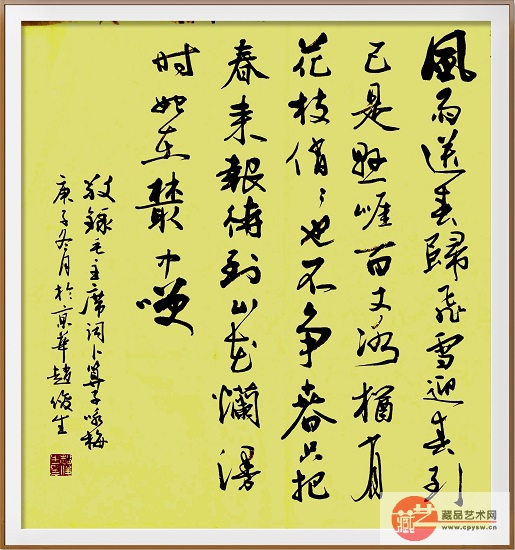 風雨送春歸飛雪迎春到
已是懸崖百丈冰猶有
花枝俏〻也不争春只把
春来報待到山花爛漫
时她在叢中咲
敬錄毛主席词卜算子咏梅
庚子冬月於京華趙俊生
藏艺
藏品艺术网
www.cpysw.cn